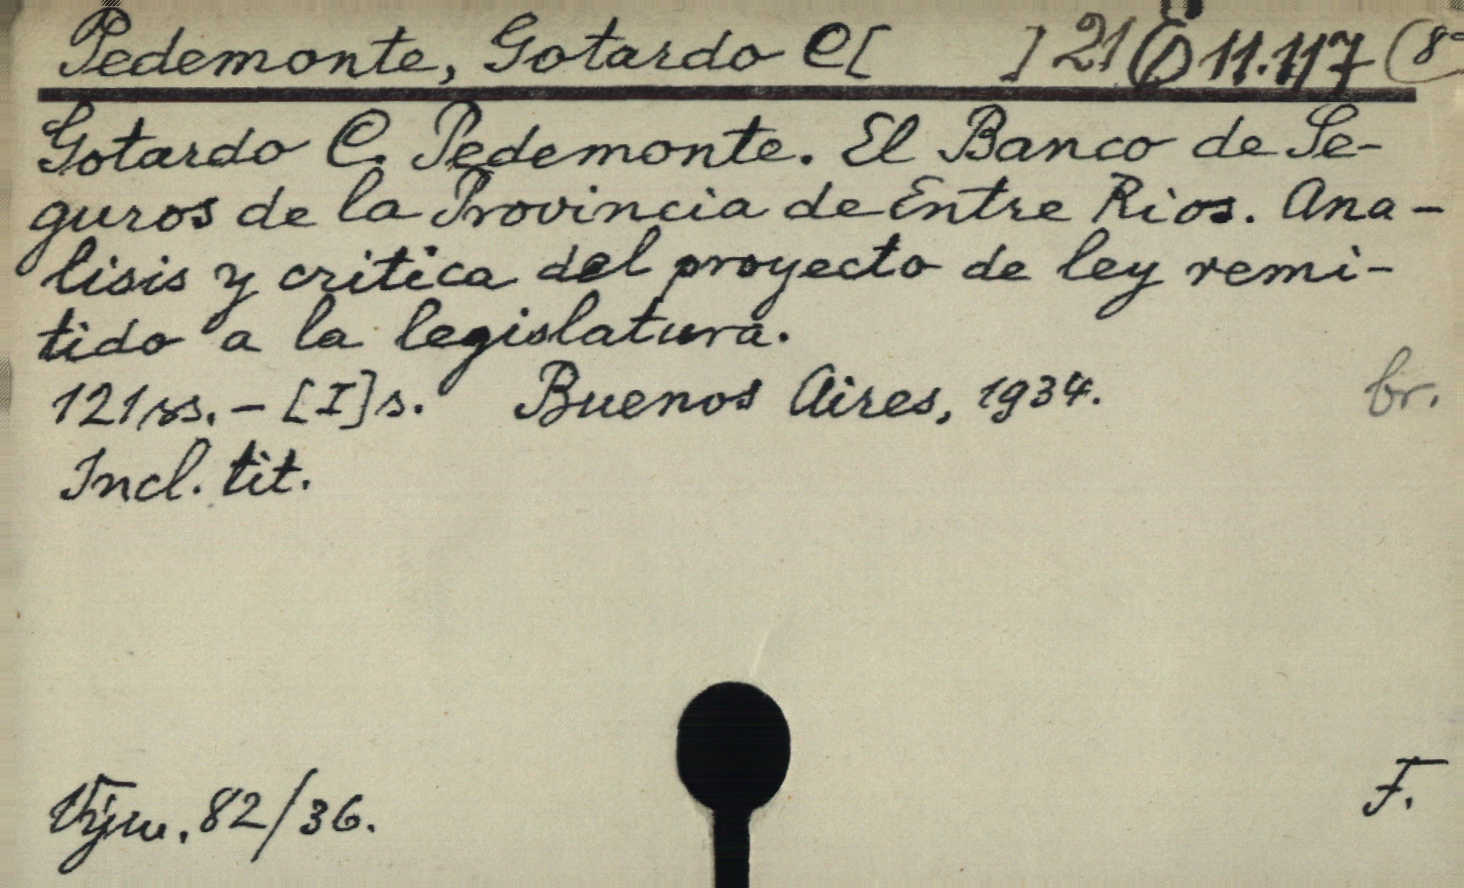 Pedemonte, Gotardo C[ ] 21 D 11.117 (8°
Gotardo C. Pedemonte. El Banco de Se-
guros de la Provincia de Entre Rios. Ana-
lisis y critica del proyecto de ley remi-
tido a la legislatura.
121 ss. – [I] s. Buenos Aires, 1934. br.
Incl. tit.
Výw. 82/36. F.